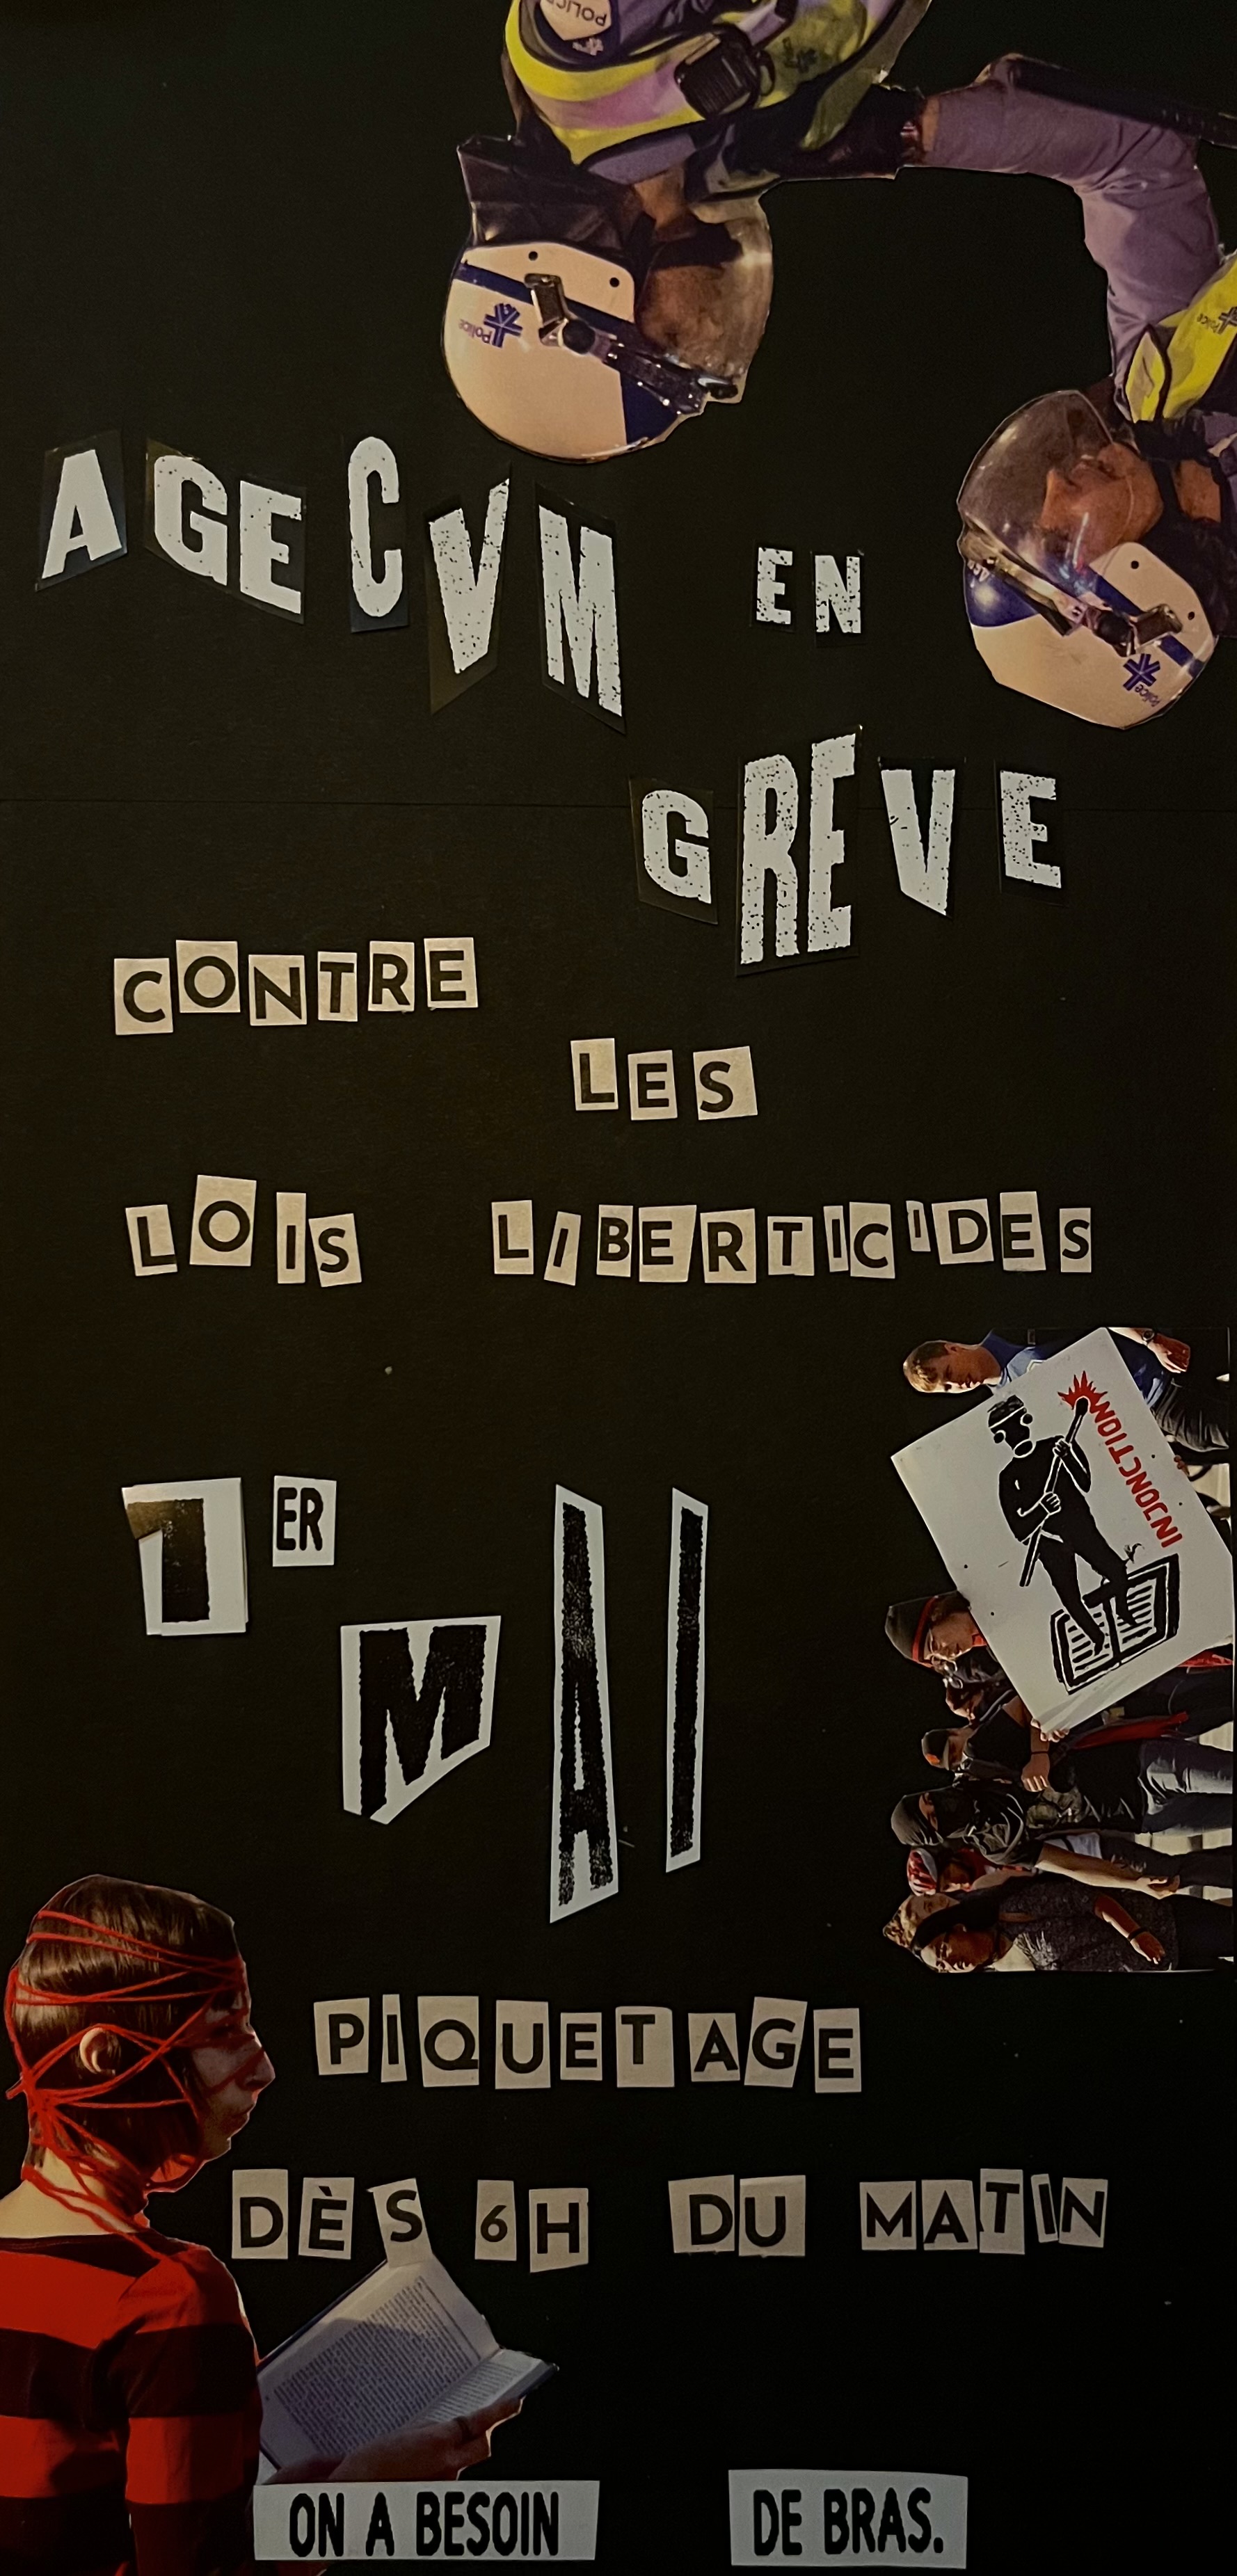 POLICE
Police
Police
Police
AGECVM EN
GREVE
CONTRE
LES
LOIS LIBERTICIDES
INJONCTION
1ER
MAI
PIQUETAGE
DÈS 6H DU MATIN
ON A BESOIN DE BRAS.